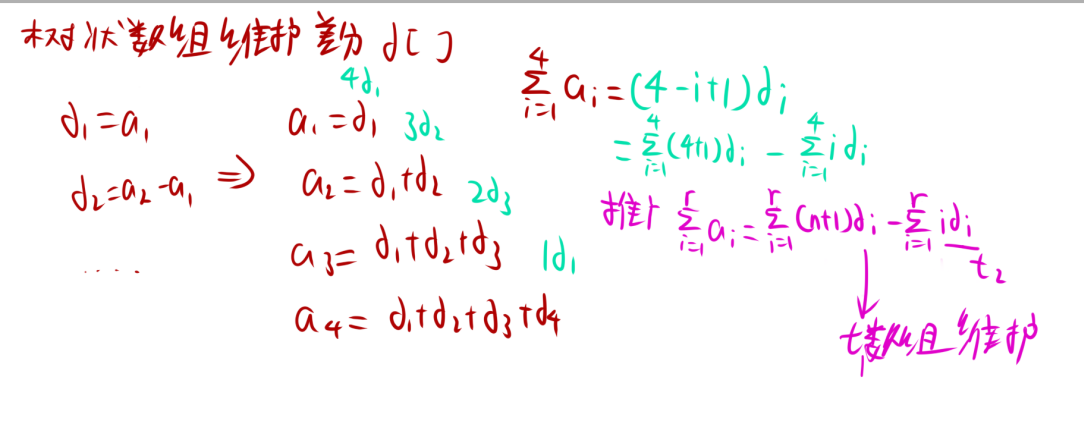 树状数组维护差分 d[ ]
d₁=a₁
d₂=a₂-a₁ ⇒
.....
4d₁
a₁=d₁ 3d₂
a₂=d₁+d₂ 2d₃
a₃= d₁+d₂+d₃ 1d₁
a₄= d₁+d₂+d₃+d₄
∑_{i=1}^{4} aᵢ=(4-i+1)dᵢ
=∑_{i=1}^{4}(4+1)dᵢ - ∑_{i=1}^{4}i dᵢ
推广 ∑_{i=1}^{r}aᵢ=∑_{i=1}^{r}(n+1)dᵢ-∑_{i=1}^{r}idᵢ
t₂
↓
t₁数组维护